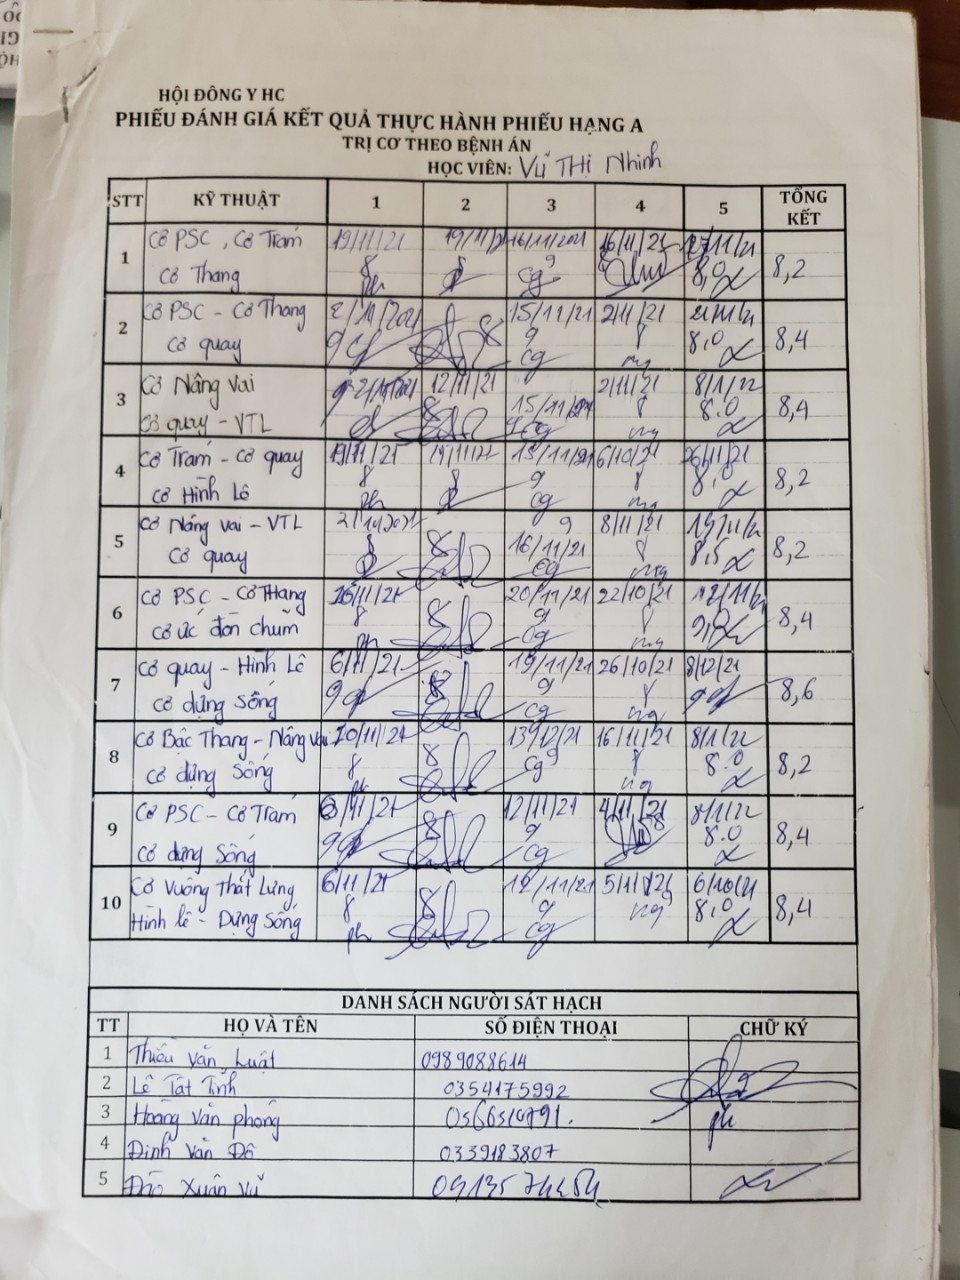 HỘI ĐÔNG Y HC
PHIẾU ĐÁNH GIÁ KẾT QUẢ THỰC HÀNH PHIẾU HẠNG A
TRỊ CƠ THEO BỆNH ÁN
HỌC VIÊN: Vũ Thị Nhinh
STT KỸ THUẬT 1 2 3 4 5 TỔNG KẾT
1 Cơ PSC , Cơ Trám 19/11/21 19/11/21 16/11/2021 16/11/21 27/11/21
Cơ Thang 8 8 9 8 8,0 8,2
ph cg
2 Cơ PSC - Cơ Thang 2/11/2021 8 15/11/21 2/11/21 21/11/21
Cơ quay 9 9 8 8,0 8,4
cg ng
3 Cơ Nâng vai 12/11/21 2/11/21 8/1/22
Cơ quay - VTL 8 15/11/2021 8 8.0 8,4
9 cg ng
4 Cơ Trám - Cơ quay 19/11/21 19/11/21 15/11/21 6/10/21 26/11/21
Cơ Hình Lê 8 9 8 8,0 8,2
ph cg ng
5 Cơ Nâng vai - VTL 9 8/11/21 19/11/21
Cơ quay 8 8 16/11/21 8 8,5 8,2
cg ng
6 Cơ PSC - Cơ Thang 26/11/21 20/11/21 22/10/21
Cơ ức đòn chũm 8 8 9 8 9,0 8,4
ph cg ng
7 Cơ quay - Hình Lê 6/11/21 19/11/21 26/10/21 8/12/21
Cơ dựng Sống 9 8 9 8 9 8,6
cg ng
8 Cơ Bậc Thang - Nâng vai 20/11/21 13/12/21 16/11/21 8/1/22
Cơ dựng Sống 8 8 9 8 8.0 8,2
ph cg ng
9 Cơ PSC - Cơ Trám 6/11/21 12/11/21 4/11/21 8/1/22
Cơ dựng Sống 9 8 9 8 8.0 8,4
cg
10 Cơ Vuông Thắt Lưng 6/11/21 12/11/21 5/11/21 6/10/21
Hình lê - Dựng Sống 8 8 9 8,0 8,4
ph cg ng
DANH SÁCH NGƯỜI SÁT HẠCH
TT HỌ VÀ TÊN SỐ ĐIỆN THOẠI CHỮ KÝ
1 Thiều Văn Luật 0989088614
2 Lê Tất Tĩnh 0354175992
3 Hoàng Văn phong ph
4 Đinh Văn Đô 0339183807
5 Đào Xuân Vũ